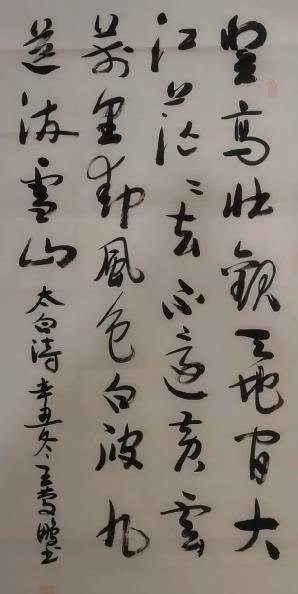 登高壮觀天地間大
江茫茫去不還黃雲
萬里動風色白波九
道流雪山
太白詩辛丑冬王